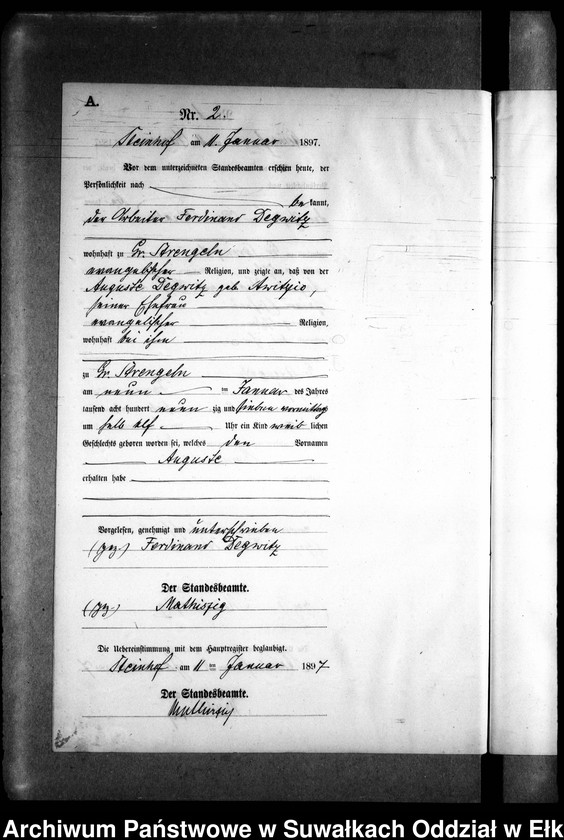 A.
Nr. 2.
Steinhof am 11. Januar 1897.
Vor dem unterzeichneten Standesbeamten erschien heute, der
Persönlichkeit nach
be kannt,
der Arbeiter Ferdinand Degwitz
wohnhaft zu Gr. Strengeln
evangelischer Religion, und zeigte an, daß von der
Auguste Degwitz geb.
seiner Ehefrau
evangelischer Religion,
wohnhaft bei ihm
zu Gr. Strengeln
am neun ten Januar des Jahres
tausend acht hundert neun zig und sieben vormittags
um halb elf Uhr ein Kind weib lichen
Geschlechts geboren worden sei, welches den Vornamen
Auguste
erhalten habe
Vorgelesen, genehmigt und unterschrieben
(gez.) Ferdinand Degwitz
Der Standesbeamte.
(gez.) Mathiszig
Die Uebereinstimmung mit dem Hauptregister beglaubigt.
Steinhof am 11 ten Januar 1897
Der Standesbeamte.
Mathiszig
Archiwum Państwowe w Suwałkach Oddział w Ełk